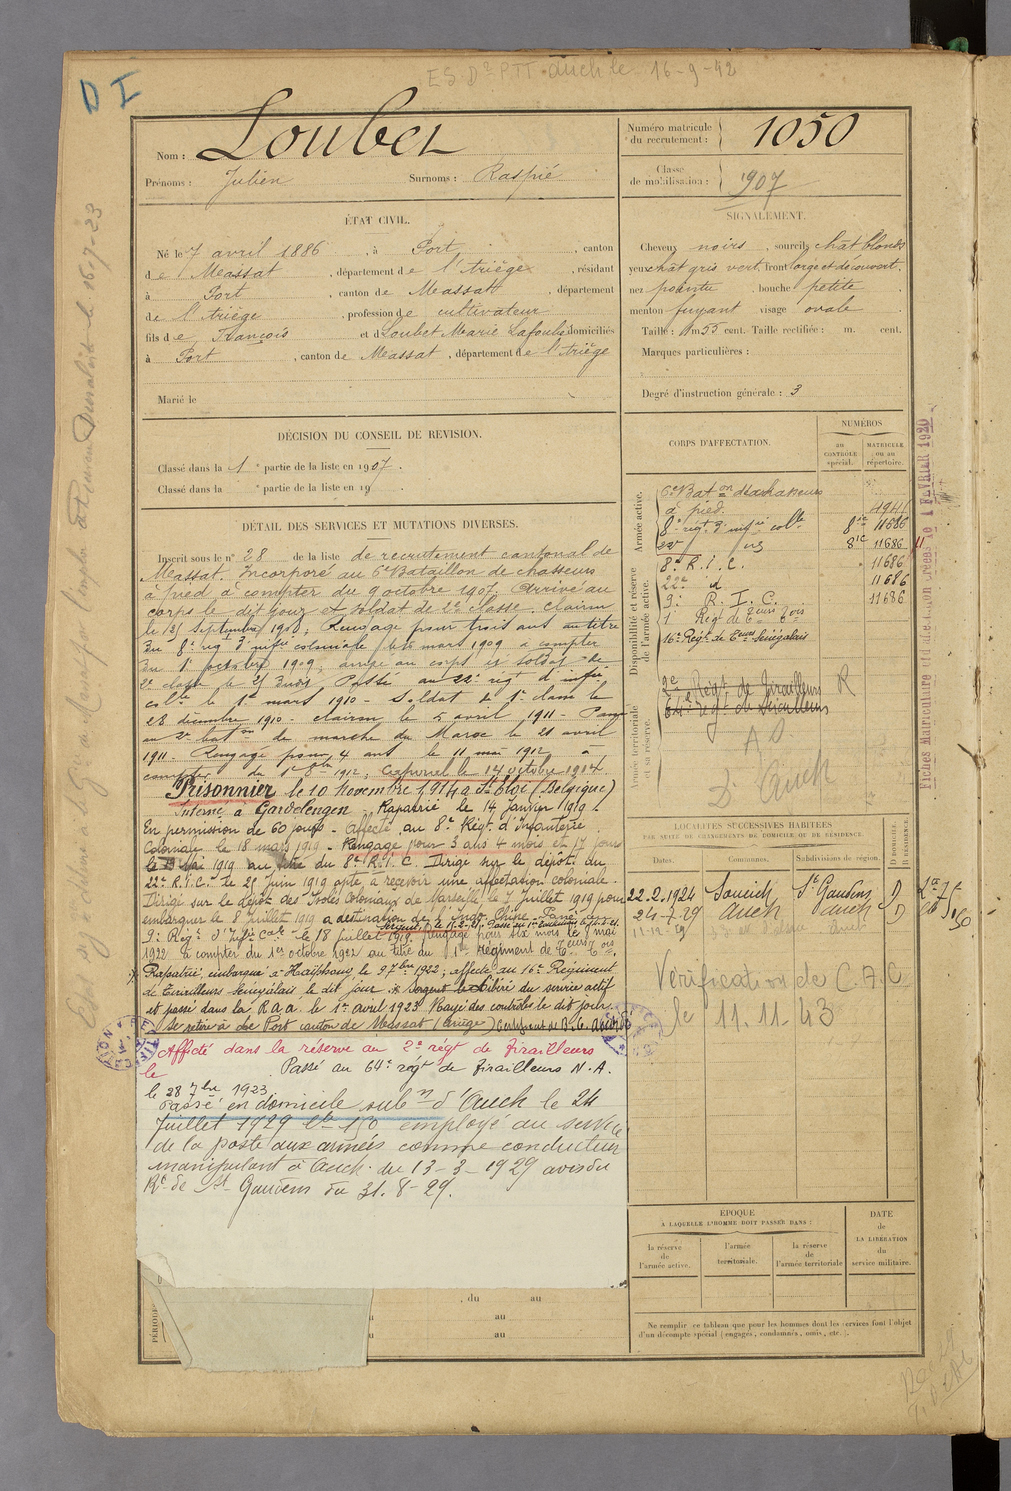 D I
E S D PTT Auch le 16-9-42
Nom : Loubet
Prénoms : Julien Surnoms : Raspié
Numéro matricule du recrutement : 1050
Classe de mobilisation : 1907
ÉTAT CIVIL.
Né le 7 avril 1886, à Port, canton
de l'Massat, département de l'Ariège, résidant
à Port, canton de Massat, département
de l'Ariège, profession de cultivateur
fils de François et de Loubet Marie Lafoube domiciliés
à Port, canton de Massat, département de l'Ariège
Marié le
SIGNALEMENT.
Cheveux noirs, sourcils chât blonds
yeux chât gris vert, front large et découvert,
nez pointu, bouche petite
menton fuyant visage ovale
Taille : 1 m 53 cent. Taille rectifiée : m. cent.
Marques particulières :
Degré d'instruction générale : 3
DÉCISION DU CONSEIL DE REVISION.
Classé dans la 1e partie de la liste en 1907.
Classé dans la e partie de la liste en 19
DÉTAIL DES SERVICES ET MUTATIONS DIVERSES.
Inscrit sous le n° 28 de la liste de recrutement cantonal de
Massat. Incorporé au 6e Bataillon de chasseurs
à pied à compter du 9 octobre 1907. Arrivé au
corps le dit jour et soldat de 2e classe. Clairon
le septembre 1908. Rengagé pour trois ans au titre
du 8e rég d'infie coloniale le mars 1909 à compter
du 1er octobre 1909, arrivé au corps et soldat de
2e classe le dit jour Passé au 22e régt d'infie
colle le 1er mars 1910 - Soldat de 1e classe le
28 décembre 1910 - clairon le 5 avril 1911 - Passé
au 2e baton de marche du Maroc le 21 avril
1911. Rengagé pour 4 ans le 11 mai 1912 à
compter du 1er 8bre 1912, Caporal le 14 octobre 1914
Prisonnier le 10 novembre 1914 à St Eloi (Belgique)
Interné à Gardelegen - Rapatrié le 14 Janvier 1919.
En permission de 60 jours - affecté au 8e Régt d'Infanterie
Coloniale le 18 mars 1919 - Rengagé pour 3 ans 4 mois et 17 jours
le Mai 1919 au titre du 8e R.I.C. Dirigé sur le dépôt du
22e R.I.C. le 21 Juin 1919 apte à recevoir une affectation coloniale.
Dirigé sur le dépôt des Isolés Coloniaux de Marseille le 7 juillet 1919 pour
embarquer le 8 juillet 1919 à destination de l'Indo Chine - Passé au
9e Régt d'Infie Cale le 18 juillet 1919. Rengagé pour six mois le 8 mai
1922 à compter du 1er octobre 1922 au titre du 1er Régiment de Teurs Tois.
Rapatrié, embarqué à Haïphong le 9 7bre 1922; affecté au 16e Régiment
de Tirailleurs Sénégalais le dit jour Libéré du service actif
et passé dans la R.a.a. le 1er avril 1923 Rayé des contrôles le dit jour
Se retire à Port canton de Massat (Ariège) Certificat de B.C. Accordé
Affecté dans la réserve au 2e régt de Tirailleurs
le Passé au 64e régt de Tirailleurs N.A.
le 28 7bre 1923
Passé en domicile subn d'Auch le 24
Juillet 1929 employé au service
de la poste aux armées comme conducteur
manipulant à Auch. du 13-3-1929 avis du
Rt de St Gaudens du 31-8-29.
CORPS D'AFFECTATION.
NUMÉROS
au CONTRÔLE spécial.
MATRICULE ou au répertoire.
Armée active.
6e Baton de chasseurs
à pied.
8e régt d'infie colle 8ic 11686
22e 8ic 11686
Disponibilité et réserve de l'armée active.
8e R.I.C. 11686
22e d 11686
9e R.I.C. 11686
1er Régt de Teurs Tois
16e Régt de Teurs Sénégalais
Armée territoriale et sa réserve.
2e Régt de Tirailleurs R
64e Régt de Tirailleurs
D Auch
LOCALITÉS SUCCESSIVES HABITÉES
PAR SUITE DE CHANGEMENTS DE DOMICILE OU DE RÉSIDENCE.
Dates. Communes. Subdivisions de région. D DOMICILE. R RÉSIDENCE.
22.2.1924 Soueich St Gaudens D
24-7-29 Auch Auch D
Vérification de C.A.C
le 11.11-43
ÉPOQUE
A LAQUELLE L'HOMME DOIT PASSER DANS :
la réserve de l'armée active.
l'armée territoriale.
la réserve de l'armée territoriale
DATE de LA LIBÉRATION du service militaire.
Ne remplir ce tableau que pour les hommes dont les services font l'objet
d'un décompte spécial (engagés, condamnés, omis, etc.).
PÉRIODES
, du au
au
au